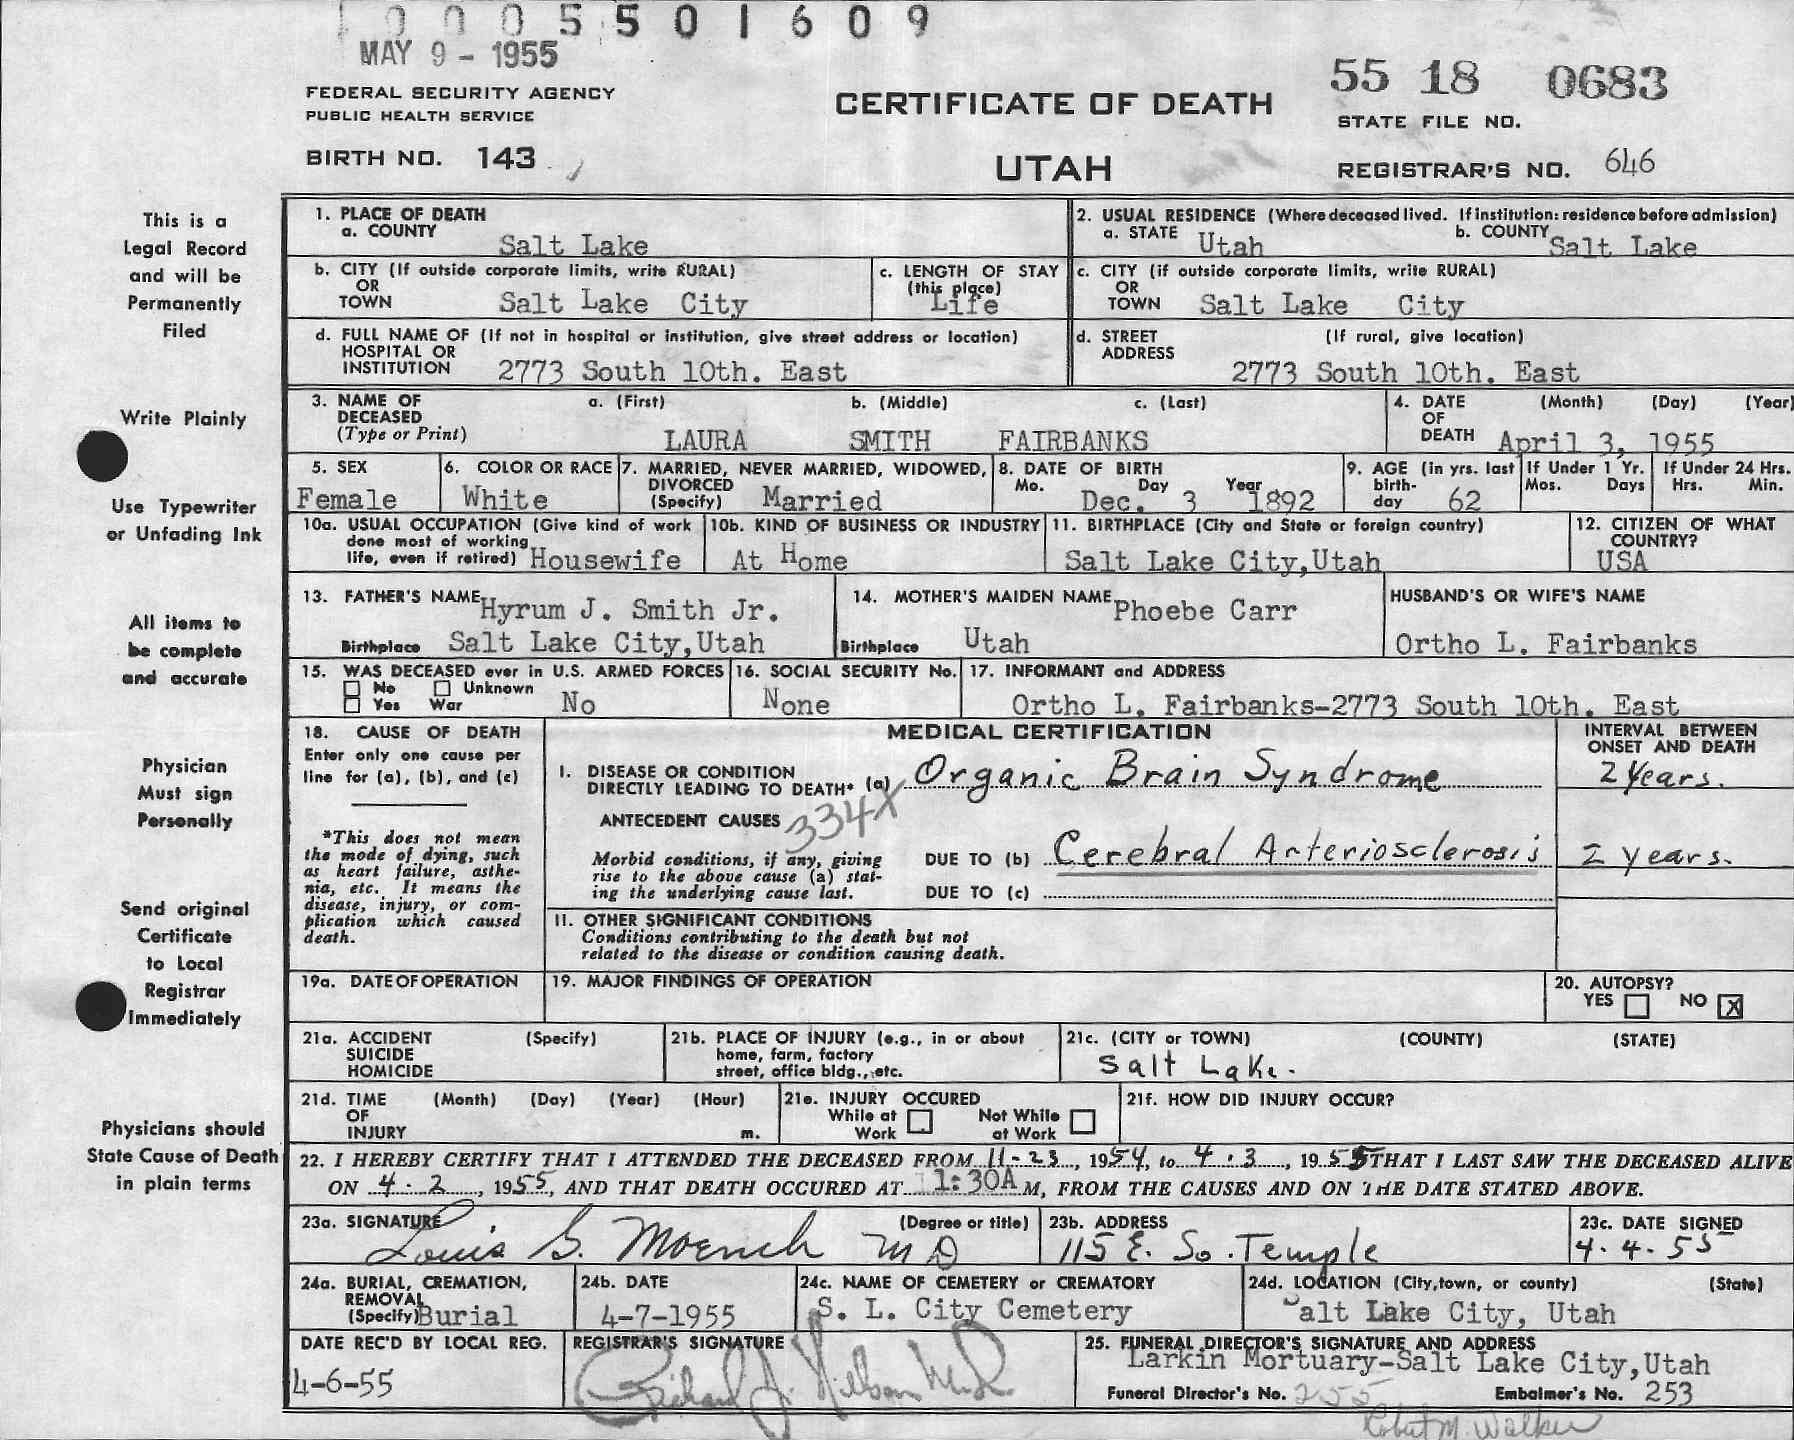 1 0 0 0 5 5 0 1 6 0 9
MAY 9 - 1955
55 18 0683
FEDERAL SECURITY AGENCY
PUBLIC HEALTH SERVICE
CERTIFICATE OF DEATH
STATE FILE NO.
BIRTH NO. 143
UTAH
REGISTRAR'S NO. 646
This is a
Legal Record
and will be
Permanently
Filed
Write Plainly
Use Typewriter
or Unfading Ink
All items to
be complete
and accurate
Physician
Must sign
Personally
Send original
Certificate
to Local
Registrar
Immediately
Physicians should
State Cause of Death
in plain terms
1. PLACE OF DEATH
a. COUNTY
Salt Lake
2. USUAL RESIDENCE (Where deceased lived. If institution: residence before admission)
a. STATE Utah b. COUNTY Salt Lake
b. CITY (If outside corporate limits, write RURAL)
OR
TOWN Salt Lake City
c. LENGTH OF STAY
(this place)
Life
c. CITY (if outside corporate limits, write RURAL)
OR
TOWN Salt Lake City
d. FULL NAME OF (If not in hospital or institution, give street address or location)
HOSPITAL OR
INSTITUTION 2773 South 10th. East
d. STREET (If rural, give location)
ADDRESS
2773 South 10th. East
3. NAME OF a. (First) b. (Middle) c. (Last)
DECEASED
(Type or Print)
LAURA SMITH FAIRBANKS
4. DATE (Month) (Day) (Year)
OF
DEATH April 3, 1955
5. SEX
Female
6. COLOR OR RACE
White
7. MARRIED, NEVER MARRIED, WIDOWED,
DIVORCED
(Specify) Married
8. DATE OF BIRTH
Mo. Day Year
Dec. 3 1892
9. AGE (in yrs. last
birth-
day 62
If Under 1 Yr.
Mos. Days
If Under 24 Hrs.
Hrs. Min.
10a. USUAL OCCUPATION (Give kind of work
done most of working
life, even if retired) Housewife
10b. KIND OF BUSINESS OR INDUSTRY
At Home
11. BIRTHPLACE (City and State or foreign country)
Salt Lake City,Utah
12. CITIZEN OF WHAT
COUNTRY?
USA
13. FATHER'S NAME Hyrum J. Smith Jr.
Birthplace Salt Lake City,Utah
14. MOTHER'S MAIDEN NAME Phoebe Carr
Birthplace Utah
HUSBAND'S OR WIFE'S NAME
Ortho L. Fairbanks
15. WAS DECEASED ever in U.S. ARMED FORCES
No Unknown
Yes War No
16. SOCIAL SECURITY No.
None
17. INFORMANT and ADDRESS
Ortho L. Fairbanks-2773 South 10th. East
18. CAUSE OF DEATH
Enter only one cause per
line for (a), (b), and (c)
*This does not mean
the mode of dying, such
as heart failure, asthe-
nia, etc. It means the
disease, injury, or com-
plication which caused
death.
MEDICAL CERTIFICATION
INTERVAL BETWEEN
ONSET AND DEATH
I. DISEASE OR CONDITION
DIRECTLY LEADING TO DEATH* (a) Organic Brain Syndrome 2 Years.
ANTECEDENT CAUSES 334X
Morbid conditions, if any, giving
rise to the above cause (a) stat-
ing the underlying cause last.
DUE TO (b) Cerebral Arteriosclerosis 2 years.
DUE TO (c)
II. OTHER SIGNIFICANT CONDITIONS
Conditions contributing to the death but not
related to the disease or condition causing death.
19a. DATE OF OPERATION
19. MAJOR FINDINGS OF OPERATION
20. AUTOPSY?
YES NO X
21a. ACCIDENT (Specify)
SUICIDE
HOMICIDE
21b. PLACE OF INJURY (e.g., in or about
home, farm, factory
street, office bldg., etc.
21c. (CITY or TOWN) (COUNTY) (STATE)
Salt Lake.
21d. TIME (Month) (Day) (Year) (Hour)
OF
INJURY m.
21e. INJURY OCCURED
While at Work
Not While at Work
21f. HOW DID INJURY OCCUR?
22. I HEREBY CERTIFY THAT I ATTENDED THE DECEASED FROM 11-23, 1954, to 4.3, 1955 THAT I LAST SAW THE DECEASED ALIVE
ON 4.2, 1955, AND THAT DEATH OCCURED AT 1:30A M, FROM THE CAUSES AND ON THE DATE STATED ABOVE.
23a. SIGNATURE (Degree or title)
Louis G. Moench MD
23b. ADDRESS
115 E. So. Temple
23c. DATE SIGNED
4.4.55
24a. BURIAL, CREMATION,
REMOVAL
(Specify) Burial
24b. DATE
4-7-1955
24c. NAME OF CEMETERY or CREMATORY
S. L. City Cemetery
24d. LOCATION (City,town, or county) (State)
Salt Lake City, Utah
DATE REC'D BY LOCAL REG.
4-6-55
REGISTRAR'S SIGNATURE
Richard J. Nelson M.D.
25. FUNERAL DIRECTOR'S SIGNATURE AND ADDRESS
Larkin Mortuary-Salt Lake City,Utah
Funeral Director's No. 255 Embalmer's No. 253
Robert M. Walker